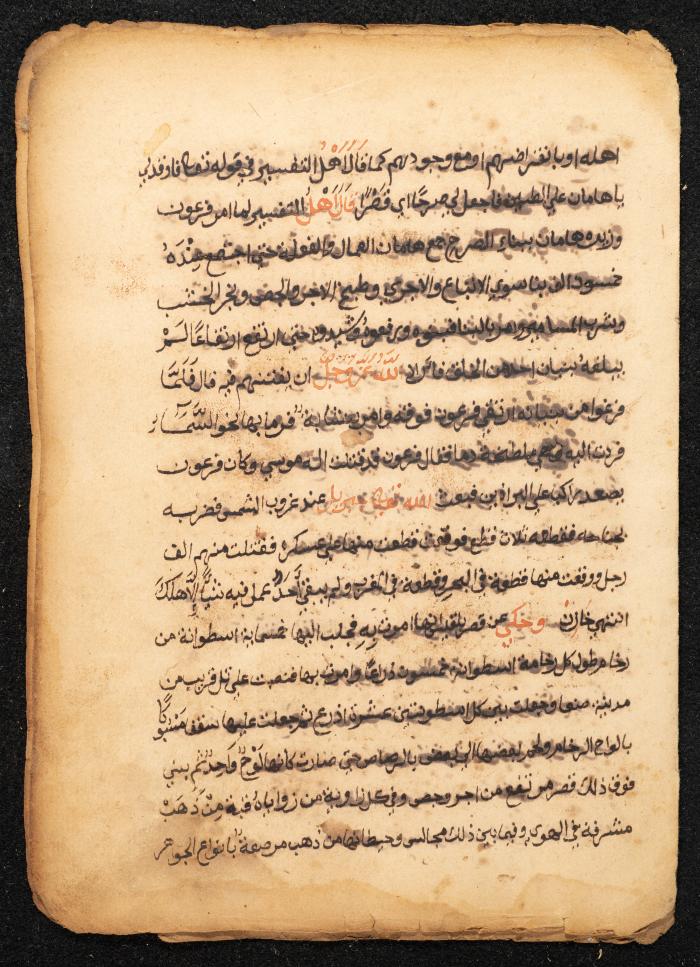 اهله او بانقراضهم او مع وجودهم كما قَالَ اَهْلُ التفسير في قوله تعالى فاوقد لي
يا هامان على الطين فاجعل لي صرحًا اي قصْرًا قَالَ اَهْلُ التفسير لما امر فرعون
وزيره هامان ببناء الصرح جمع هامان العمال والفعلة حتى اجتمع عِنْدَهُ
خمسون الف بنا سوى الاتباع والاجرى وطبخ الاجر والجص ونجر الخشب
وضرب المسامير وامر بالبنا فبنوه ورفعوه وشيدوه حتى ارتفع ارتفاعًا لَمْ
يبلغه بنيان احد من الخلق فاراد اللّه عزّ وجلّ ان يفتنهم فيه قال فَلَمَّا
فرغوا من بنيانه ارتقى فرعون فوقه وامر بنشابة فرما بها نحو السَّمَآءِ
فردت اليه وهي ملطخة دما فقال فرعون قد قتلت اله موسى وكان فرعون
يصعد راكب على البراذين فبعث الله تعالى جبريل عند غروب الشمس فضربه
بجناحه فقطعه ثلاث قطع فوقعت قطعة منها على عسكره فقتلت منهم الف
رجل ووقعت منها قطعة في البحر وقطعة في الغرب ولم يبقى اَحَدٌ عمل فيه شَيْئًا اِلاَّ هلك
انتهى خازن وحُكي عن قصر بلقيس انها امرت بِهِ فجلب اليها خمسماية اسطوانة من
رخام طول كل رخامة اسطوانة خمسون ذراعًا وامرت بها فنصبت على تل قريب من
مدينة صنعا وجعلت بين كل اسطوانتين عشرة اذرع ثم جعلت عليها سقف مَسْبُوكًا
بالواح الرخام ولحم بعضها الى بعض بالرصاص حتى صارت كانها لَوْحٌ وَاحِدٌ ثم بنى
فوق ذلك قصر مرتفع من اجر وجص وفي كل زاوية من زواياه قبة مِنْ ذَهَبْ
مشرفة في الهوى وفيما بين ذلك مجالس وحيطانها من ذهب مرصعة بانواع الجواهر